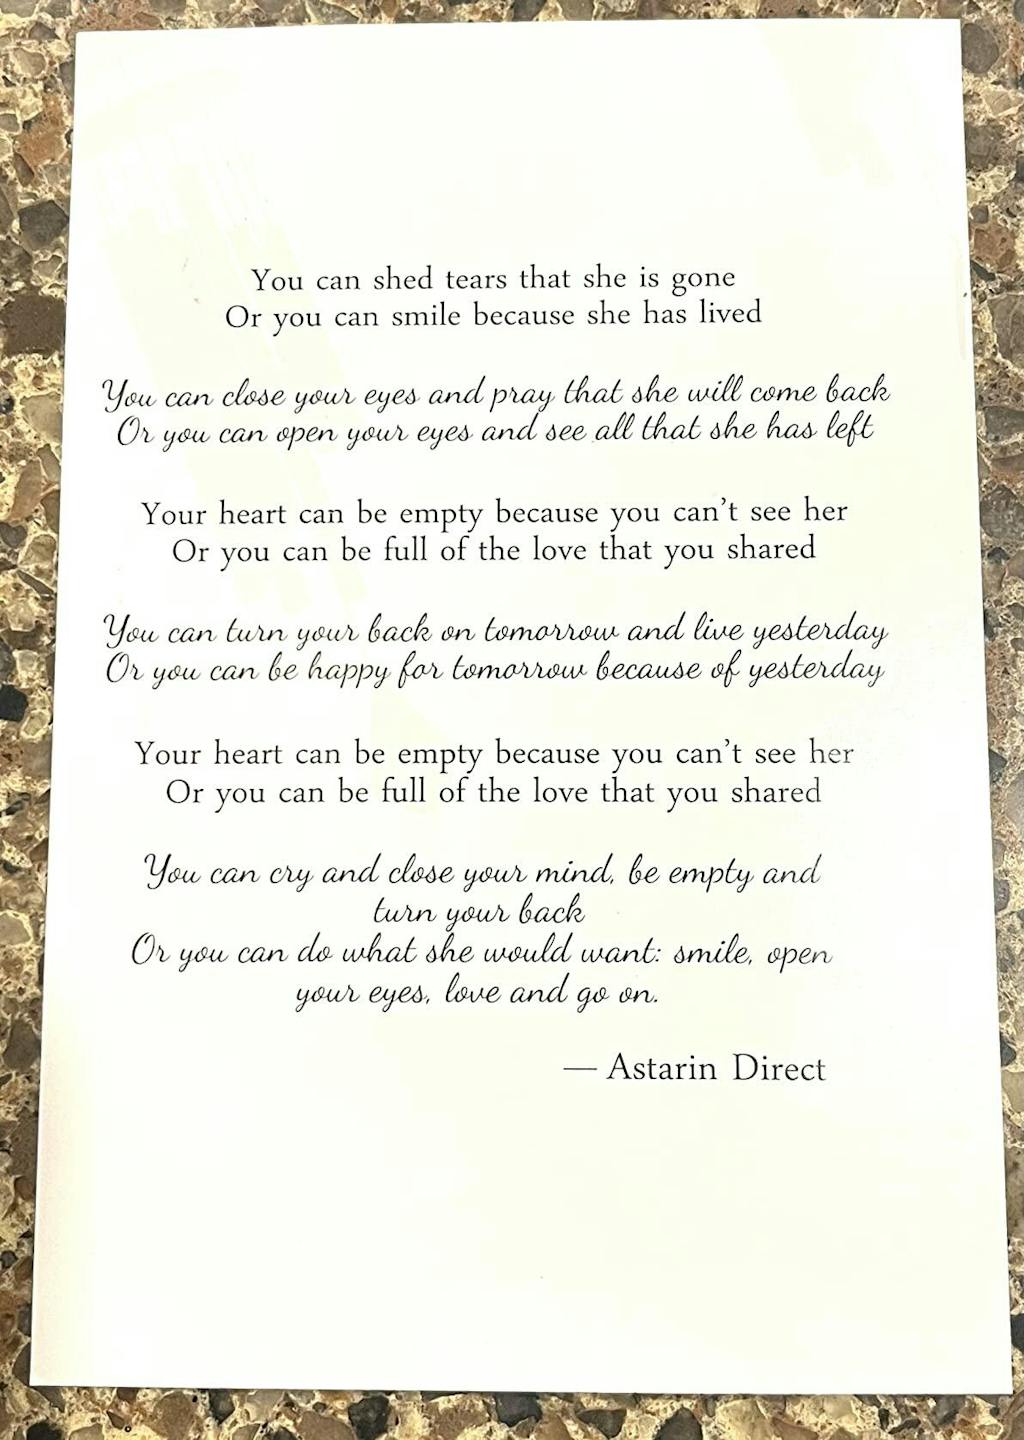 You can shed tears that she is gone
Or you can smile because she has lived
You can close your eyes and pray that she will come back
Or you can open your eyes and see all that she has left
Your heart can be empty because you can't see her
Or you can be full of the love that you shared
You can turn your back on tomorrow and live yesterday
Or you can be happy for tomorrow because of yesterday
Your heart can be empty because you can't see her
Or you can be full of the love that you shared
You can cry and close your mind, be empty and
turn your back
Or you can do what she would want: smile, open
your eyes, love and go on.
— Astarin Direct